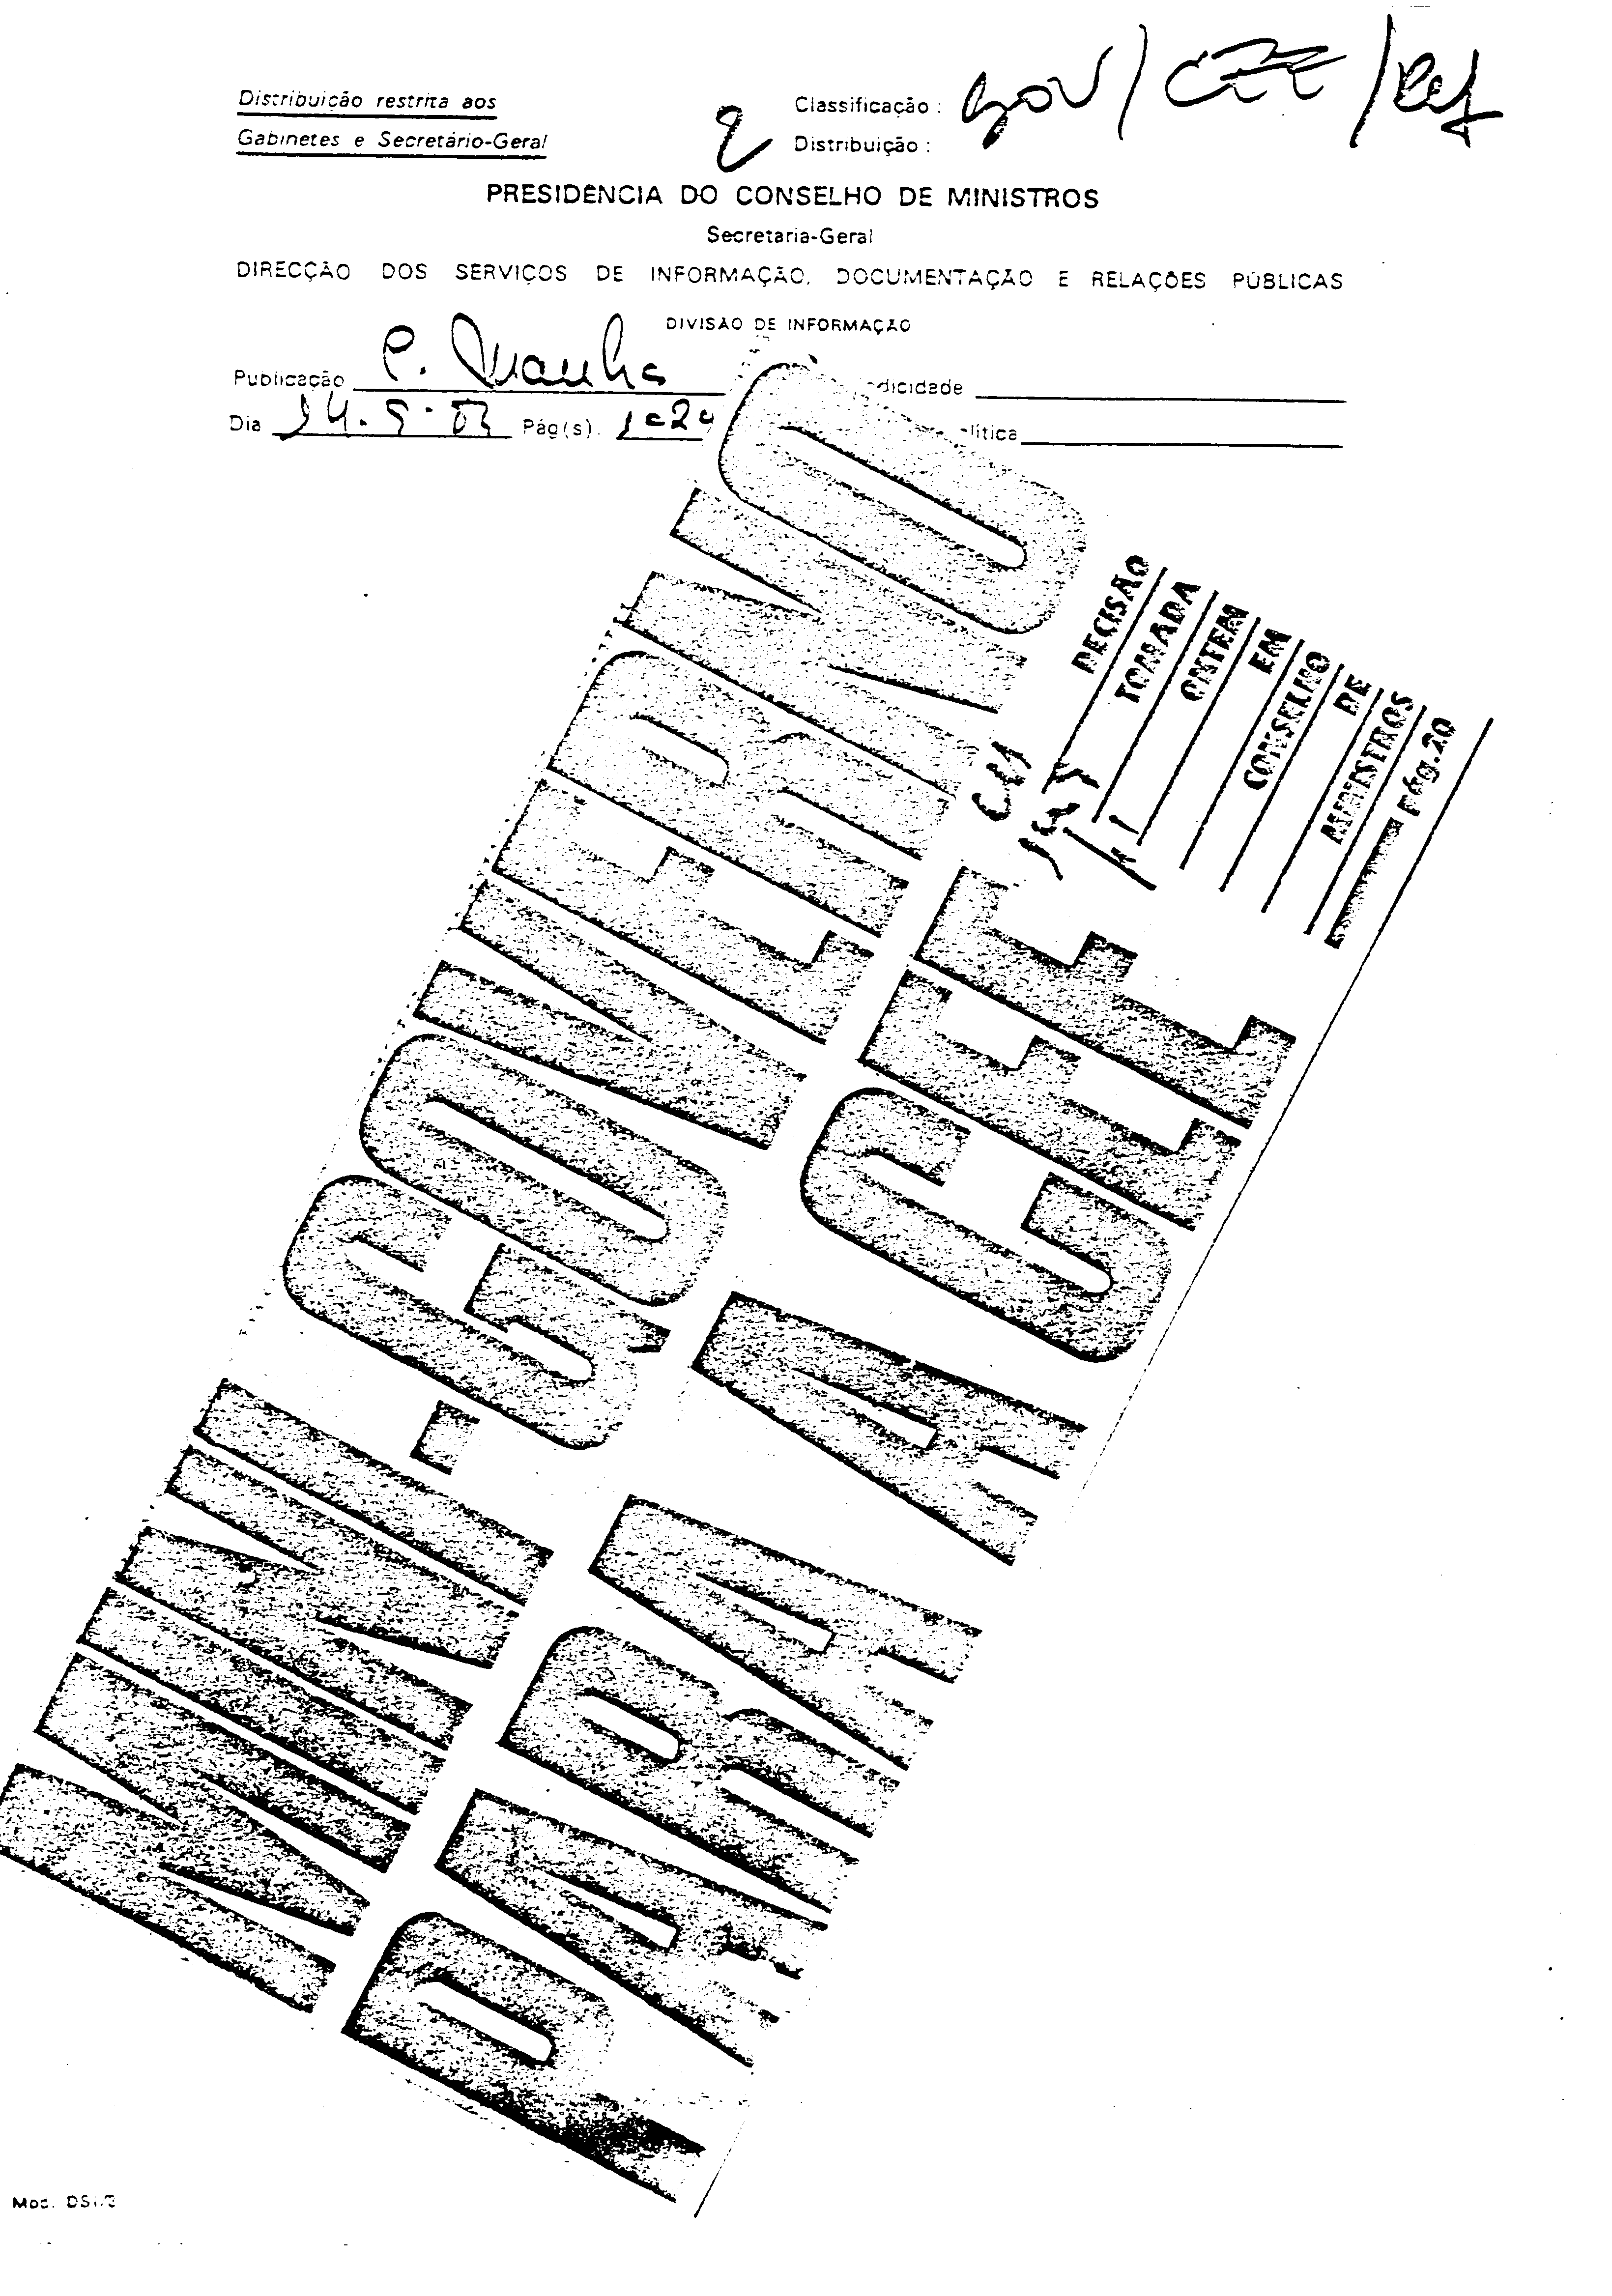 Distribuição restrita aos
Gabinetes e Secretário-Geral
Classificação : Gov/CEE/Ref
Distribuição :
PRESIDÊNCIA DO CONSELHO DE MINISTROS
Secretaria-Geral
DIRECÇÃO DOS SERVIÇOS DE INFORMAÇÃO, DOCUMENTAÇÃO E RELAÇÕES PÚBLICAS
DIVISÃO DE INFORMAÇÃO
Publicação C. Manhã dicidade
Dia Pág(s). lítica
MINI-GOVERNO
PARA A CEE
DECISÃO
TOMADA
ONTEM
EM
CONSELHO
DE
MINISTROS
pág.20
Mod. DSI/3